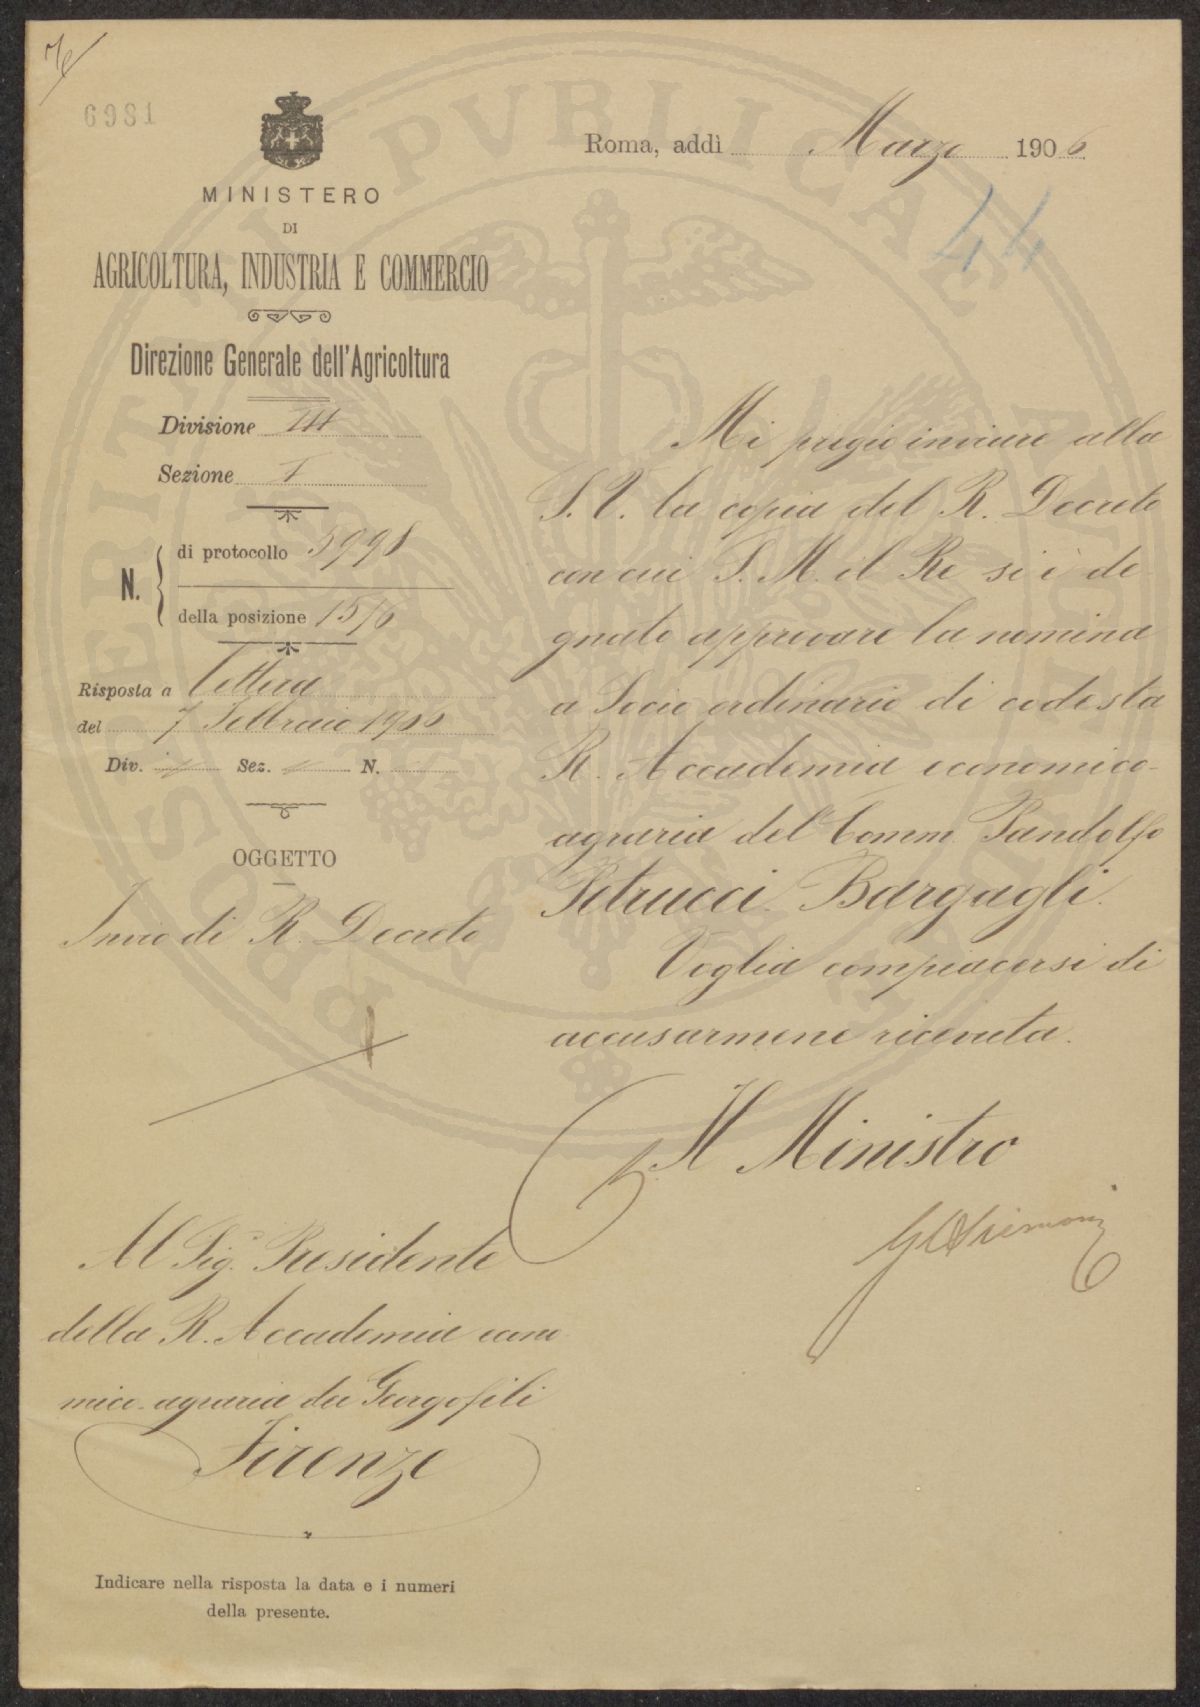 6981
MINISTERO
DI
AGRICOLTURA, INDUSTRIA E COMMERCIO
Direzione Generale dell'Agricoltura
Divisione III
Sezione 1
N.
di protocollo 5998
della posizione 15/6
Risposta a lettera
del 7 Febbraio 1906
Div. Sez. N.
OGGETTO
Invio di R. Decreto
Roma, addì Marzo 1906
44
Mi pregio inviare alla
S. V. la copia del R. Decreto
con cui S. M. il Re si è de-
gnato approvare la nomina
a Socio ordinario di codesta
R. Accademia economico-
agraria del Comm. Pandolfo
Petrucci Bargagli.
Voglia compiacersi di
accusarmene ricevuta.
Il Ministro
Al Sig. Presidente
della R. Accademia econo
mico-agraria dei Georgofili
Firenze
Indicare nella risposta la data e i numeri
della presente.
PROSPERITATI PVBLICAE AVGENDAE